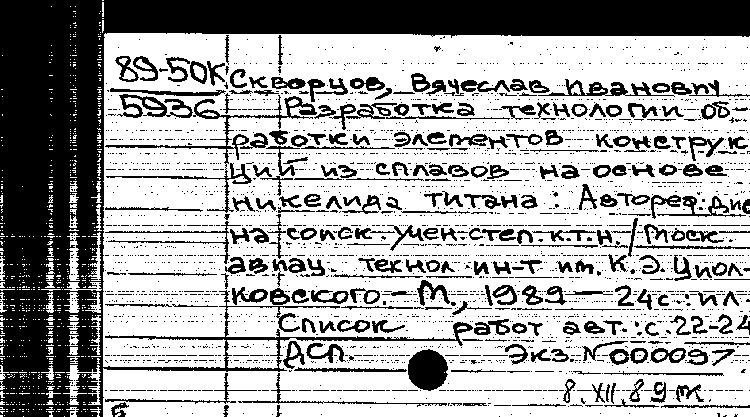 89-50К Скворцов, Вячеслав Иванович
5936 Разработка технологии об-
работки элементов конструк
ций из сплавов на основе
никелида титана : Автореф. дис
на соиск. учен. степ. к.т.н. / Моск.
авиац. технол. ин-т им. К.Э. Циол-
ковского. - М., 1989 - 24с. : ил.
Список работ авт. : с. 22-24
ДСП. Экз. N 000097
8.XII.89